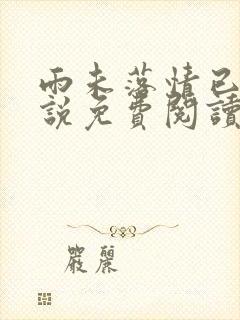 雨未落情已
說免費閱讀
嚴麗